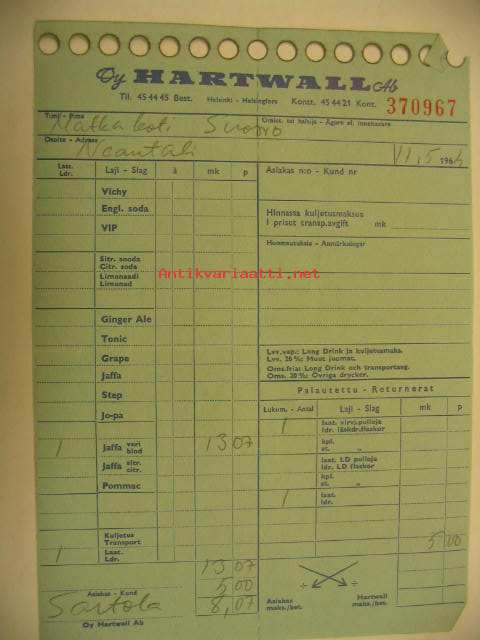 Oy HARTWALL Ab
Til. 45 44 45 Best. Helsinki - Helsingfors Konst. 45 44 21 Kont. 370967
Nimi - Firma Omist. tai haltija - Ägare el. innehavare
Matkakoti Suomo
Osoite - Adress
Naantali 11.5 1964
Laat. Ldr. Laji - Slag à mk p Asiakas n:o - Kund nr
Vichy
Engl. soda
VIP
Hinnassa kuljetusmaksua
I priset transp.avgift mk
Huomautuksia - Anmärkningar
Sitr. sooda
Citr. soda
Limonaadi
Limonad
Antikvariaatti.net
Ginger Ale
Tonic
Grape
Jaffa
Step
Jo-pa
Lvv.vap.: Long Drink ja kuljetusmaks.
Lvv. 20 %: Muut juomat.
Oms.fria: Long Drink och transportavg.
Oms. 20 %: Övriga drycker.
Palautettu - Returnerat
Lukum. - Antal Laji - Slag mk p
1 laat. virvj.pulloja
ldr. läskdr.flaskor
1 Jaffa veri blod 13 07
kpl.
st. „
Jaffa sitr. citr.
laat. LD pulloja
ldr. LD flaskor
Pommac
kpl.
st. „
1 laat.
ldr.
Kuljetus
Transport
5 00
1 Laat.
Ldr.
13 07
5 00
8,07
Asiakas - Kund
Sartola
Oy Hartwall Ab
Asiakas
maks./bet.
Hartwall
maks./bet.